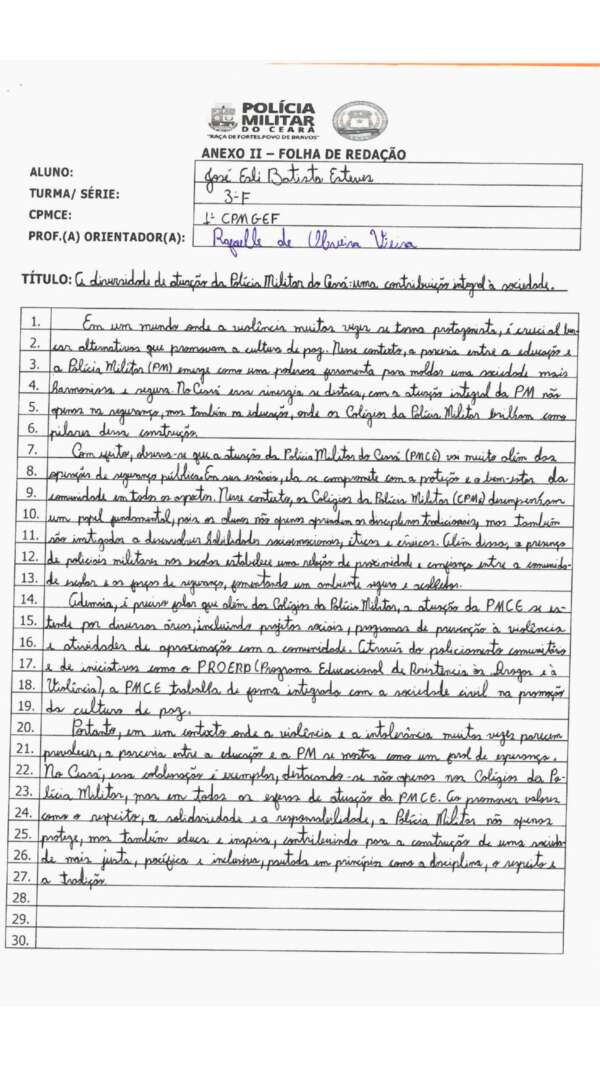 POLÍCIA
MILITAR
DO CEARÁ
"RAÇA DE FORTES, POVO DE BRAVOS"
ANEXO II – FOLHA DE REDAÇÃO
ALUNO: José Esli Batista Esteves
TURMA/ SÉRIE: 3º F
CPMCE: 1º CPMGEF
PROF.(A) ORIENTADOR(A): Rafaelle de Oliveira Vieira
TÍTULO: A diversidade de atuação da Polícia Militar do Ceará: uma contribuição integral à sociedade.
1. Em um mundo onde a violência muitas vezes se torna protagonista, é crucial bus-
2. car alternativas que promovam a cultura de paz. Nesse contexto, a parceria entre a educação e
3. a Polícia Militar (PM) emerge como uma poderosa ferramenta para moldar uma sociedade mais
4. harmoniosa e segura. No Ceará essa sinergia se destaca, com a atuação integral da PM não
5. apenas na segurança, mas também na educação, onde os Colégios da Polícia Militar brilham como
6. pilares dessa construção.
7. Com efeito, observa-se que a atuação da Polícia Militar do Ceará (PMCE) vai muito além das
8. operações de segurança pública. Em sua essência, ela se compromete com a proteção e o bem-estar da
9. comunidade em todos os aspectos. Nesse contexto, os Colégios da Polícia Militar (CPMs) desempenham
10. um papel fundamental, pois os alunos não apenas aprendem as disciplinas tradicionais, mas também
11. são instigados a desenvolver habilidades socioemocionais, éticas e cívicas. Além disso, a presença
12. de policiais militares nas escolas estabelece uma relação de proximidade e confiança entre a comunida-
13. de escolar e as forças de segurança, fomentando um ambiente seguro e acolhedor.
14. Ademais, é preciso falar que além dos Colégios da Polícia Militar, a atuação da PMCE se es-
15. tende por diversas áreas, incluindo projetos sociais, programas de prevenção à violência
16. e atividades de aproximação com a comunidade. Através do policiamento comunitário
17. e de iniciativas como o PROERD (Programa Educacional de Resistência às Drogas e à
18. Violência), a PMCE trabalha de forma integrada com a sociedade civil na promoção
19. da cultura de paz.
20. Portanto, em um contexto onde a violência e a intolerância muitas vezes parecem
21. prevalecer, a parceria entre a educação e a PM se mostra como um farol de esperança.
22. No Ceará, essa colaboração é exemplar, destacando-se não apenas nos Colégios da Po-
23. lícia Militar, mas em todas as esferas de atuação da PMCE. Ao promover valores
24. como o respeito, a solidariedade e a responsabilidade, a Polícia Militar não apenas
25. protege, mas também educa e inspira, contribuindo para a construção de uma socieda-
26. de mais justa, pacífica e inclusiva, pautada em princípios como a disciplina, o respeito e
27. a tradição.
28.
29.
30.